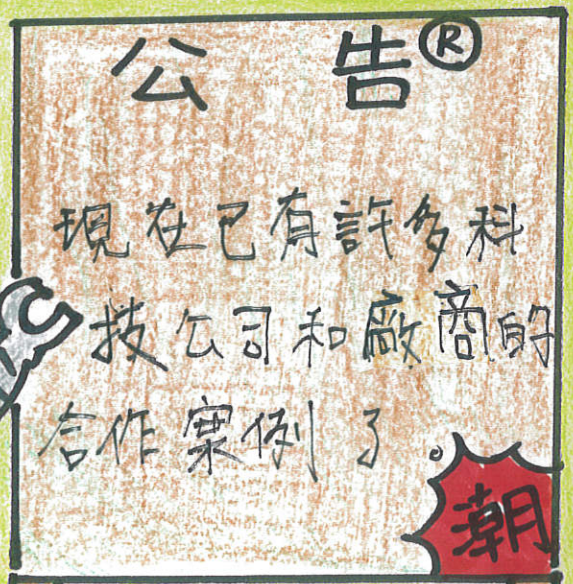 公告®
現在已有許多科
技公司和廠商的
合作案例了。
潮